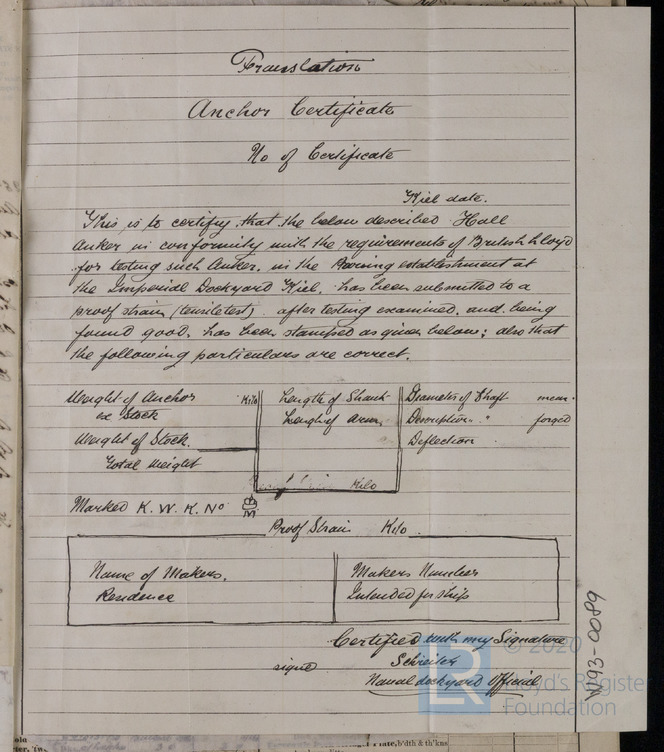 Translation
Anchor Certificate
No of Certificate
Kiel date.
This is to certify that the below described Hall
Anker in conformity with the requirements of British Lloyd
for testing such Anker. in the Proving establishment at
the Imperial Dockyard Kiel, has been submitted to a
proof strain (tensile test). after testing examined, and being
found good, has been stamped as given below; also that
the following particulars are correct.
Weight of Anchor Kilo Length of Shank Diameter of Shaft mean.
ex Stock Length of Arm Description " forged
Weight of Stock Deflection
Total Weight
Kilo
Marked K. W. K. No M
Proof Strain Kilo.
Name of Makers. Makers Number
Residence Intended for ship
Certified with my Signature
signed Schreiter
Naval dockyard Official
W93-0089
© 2020
Lloyd's Register
Foundation
LR
b'dth & th'kns